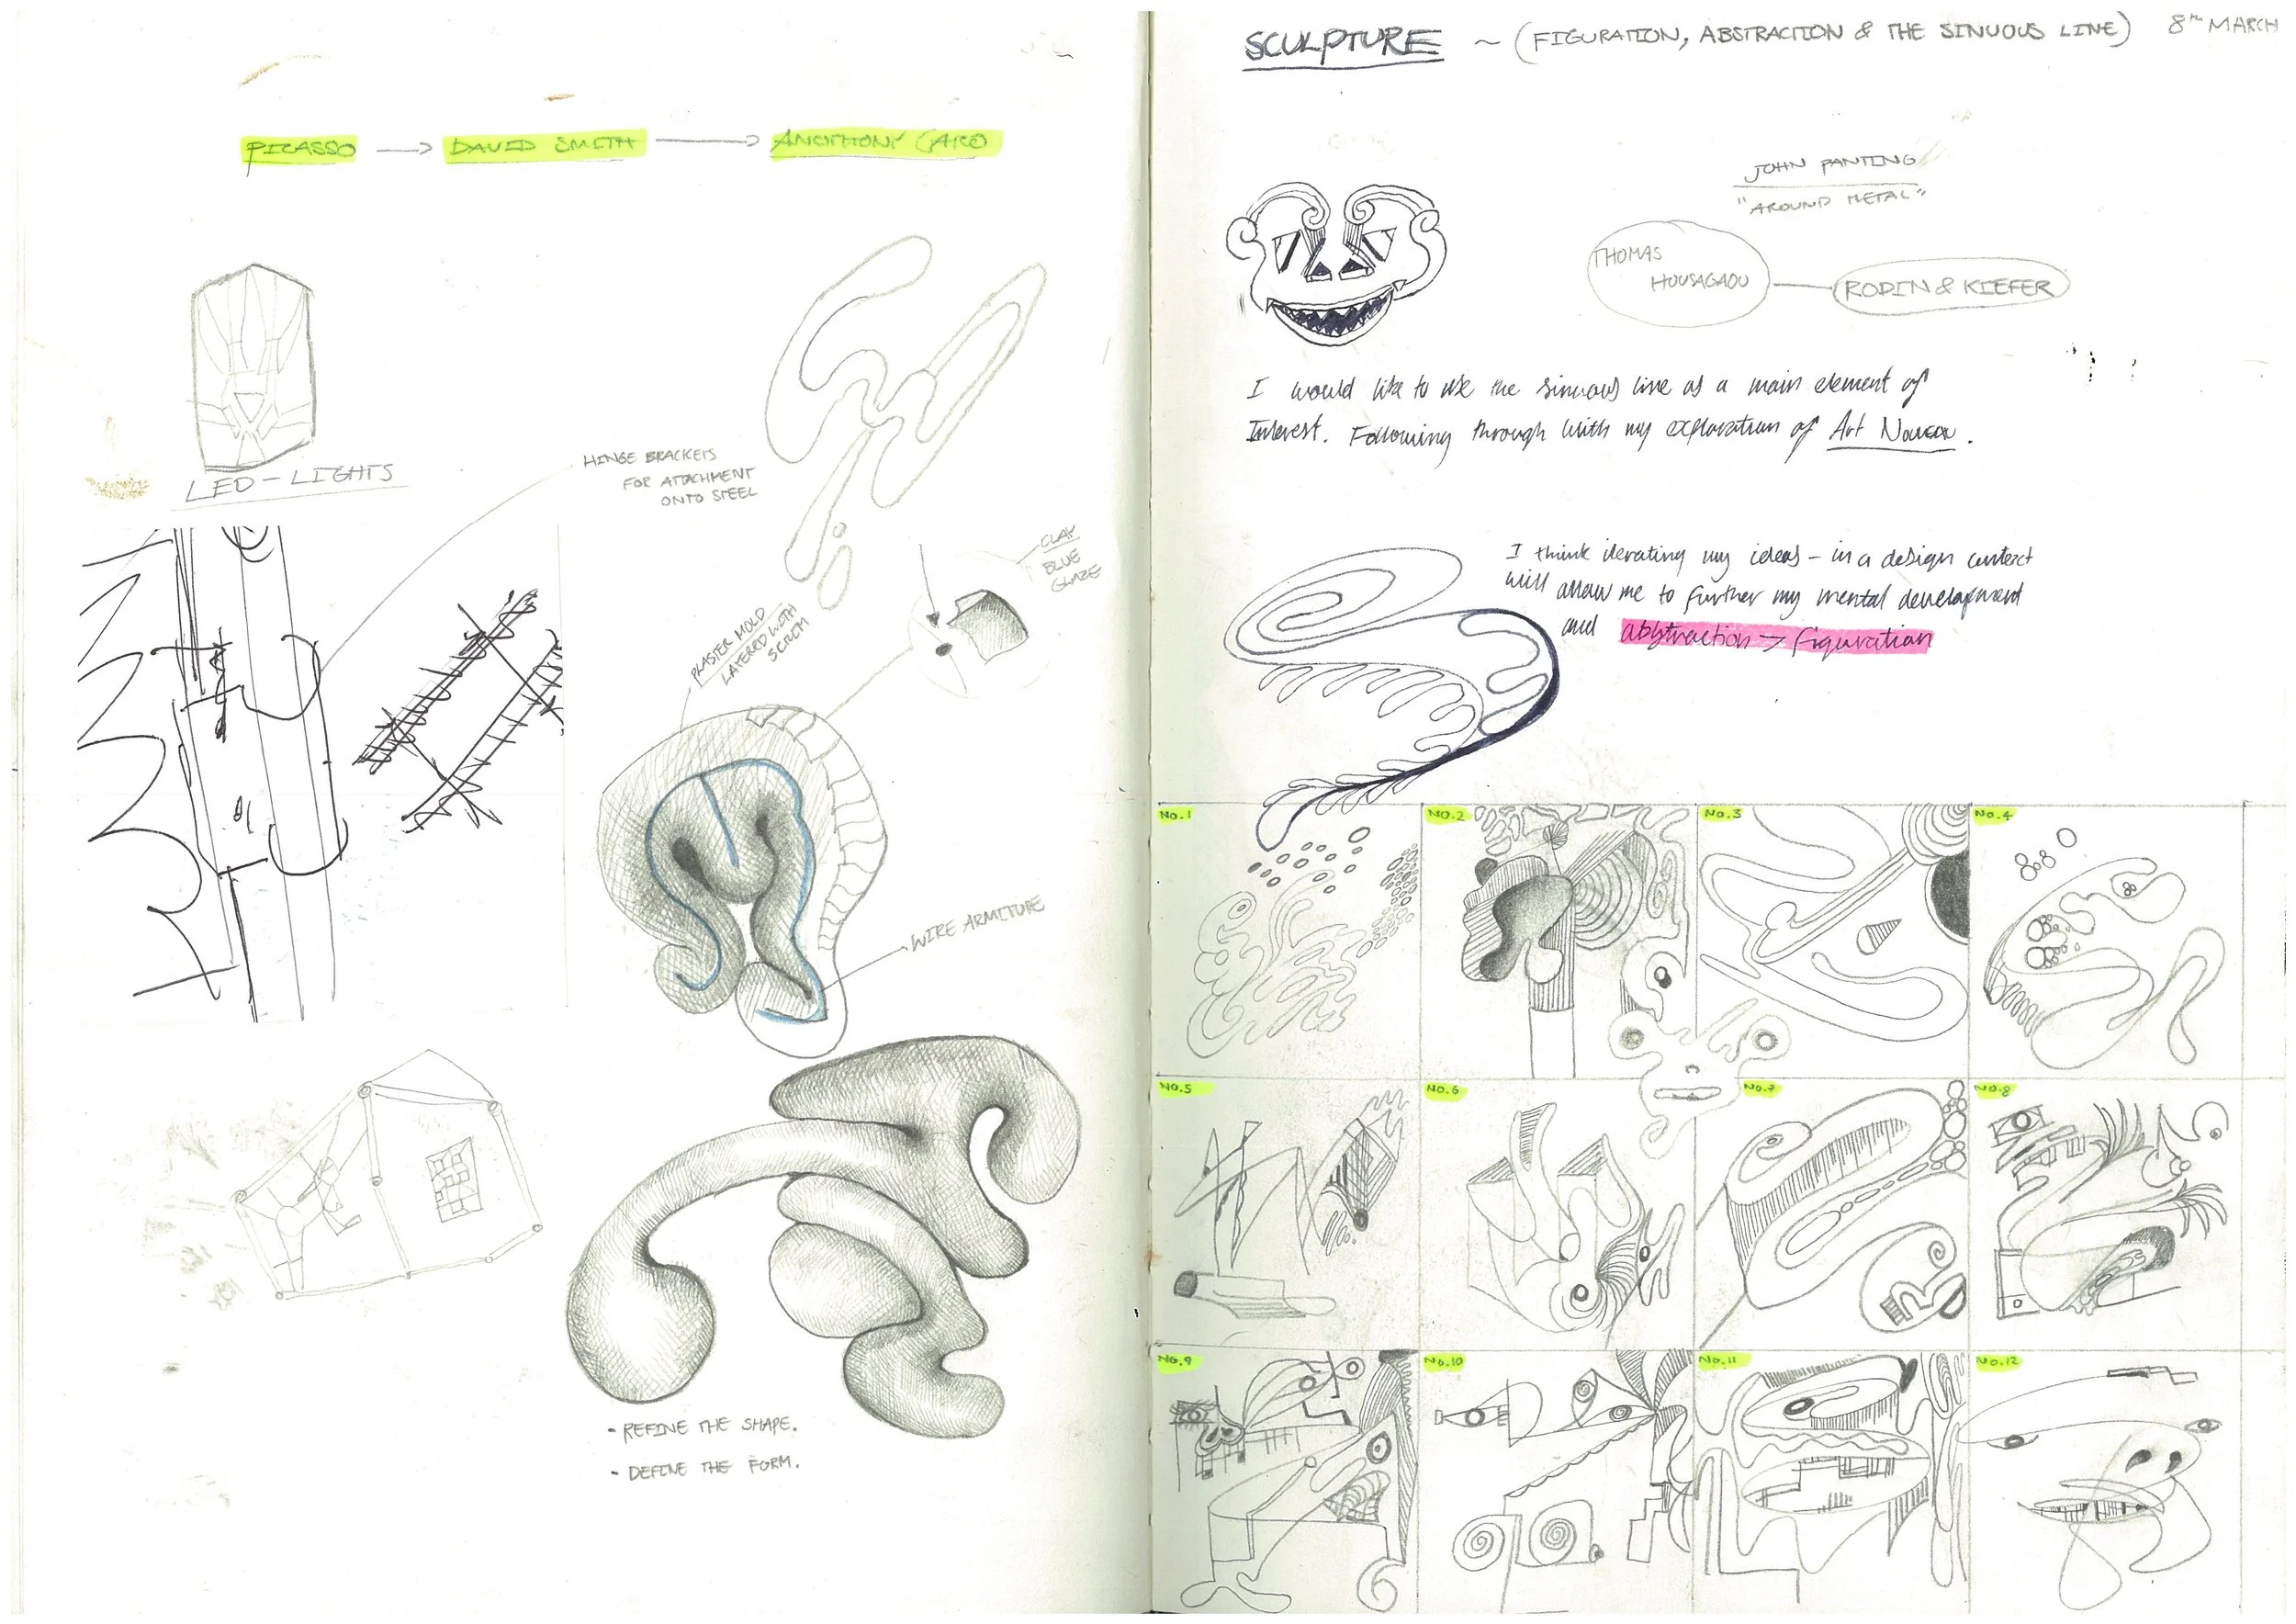 PICASSO → DAVID SMITH → ANOTHONY CARO
LED-LIGHTS
HINGE BRACKETS
FOR ATTACHMENT
ONTO STEEL
CLAY
BLUE
GLAZE
PLASTER MOLD
LAYERED WITH
SCRIM
WIRE ARMITURE
- REFINE THE SHAPE.
- DEFINE THE FORM.
SCULPTURE ~ (FIGURATION, ABSTRACTION & THE SINUOUS LINE) 8TH MARCH
JOHN PANTING
"AROUND METAL"
THOMAS
HOUSAGAOU
RODIN & KIEFER
I would like to use the sinuous line as a main element of
Interest. Following through with my exploration of Art Nouveau.
I think iterating my ideas - in a design context
will allow me to further my mental development
and abstraction > figuration
No.1
No.2
No.3
No.4
No.5
No.6
No.7
No.8
No.9
No.10
No.11
No.12